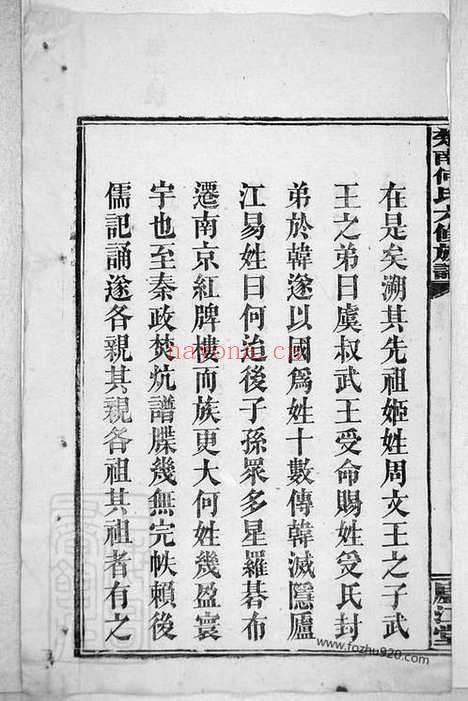 在是矣溯其先祖姬姓周文王之子武
王之弟曰虞叔武王受命賜姓受氏封
弟於韓遂以國爲姓十數傳韓滅隱廬
江易姓曰何治後子孫眾多星羅碁布
遷南京紅牌樓而族更大何姓幾盈寰
宇也至秦政焚炕譜牒幾無完帙賴後
儒記誦遂各親其親各祖其祖者有之
何氏六修族譜
廬江堂
nayona.cn
www.fozhu920.com